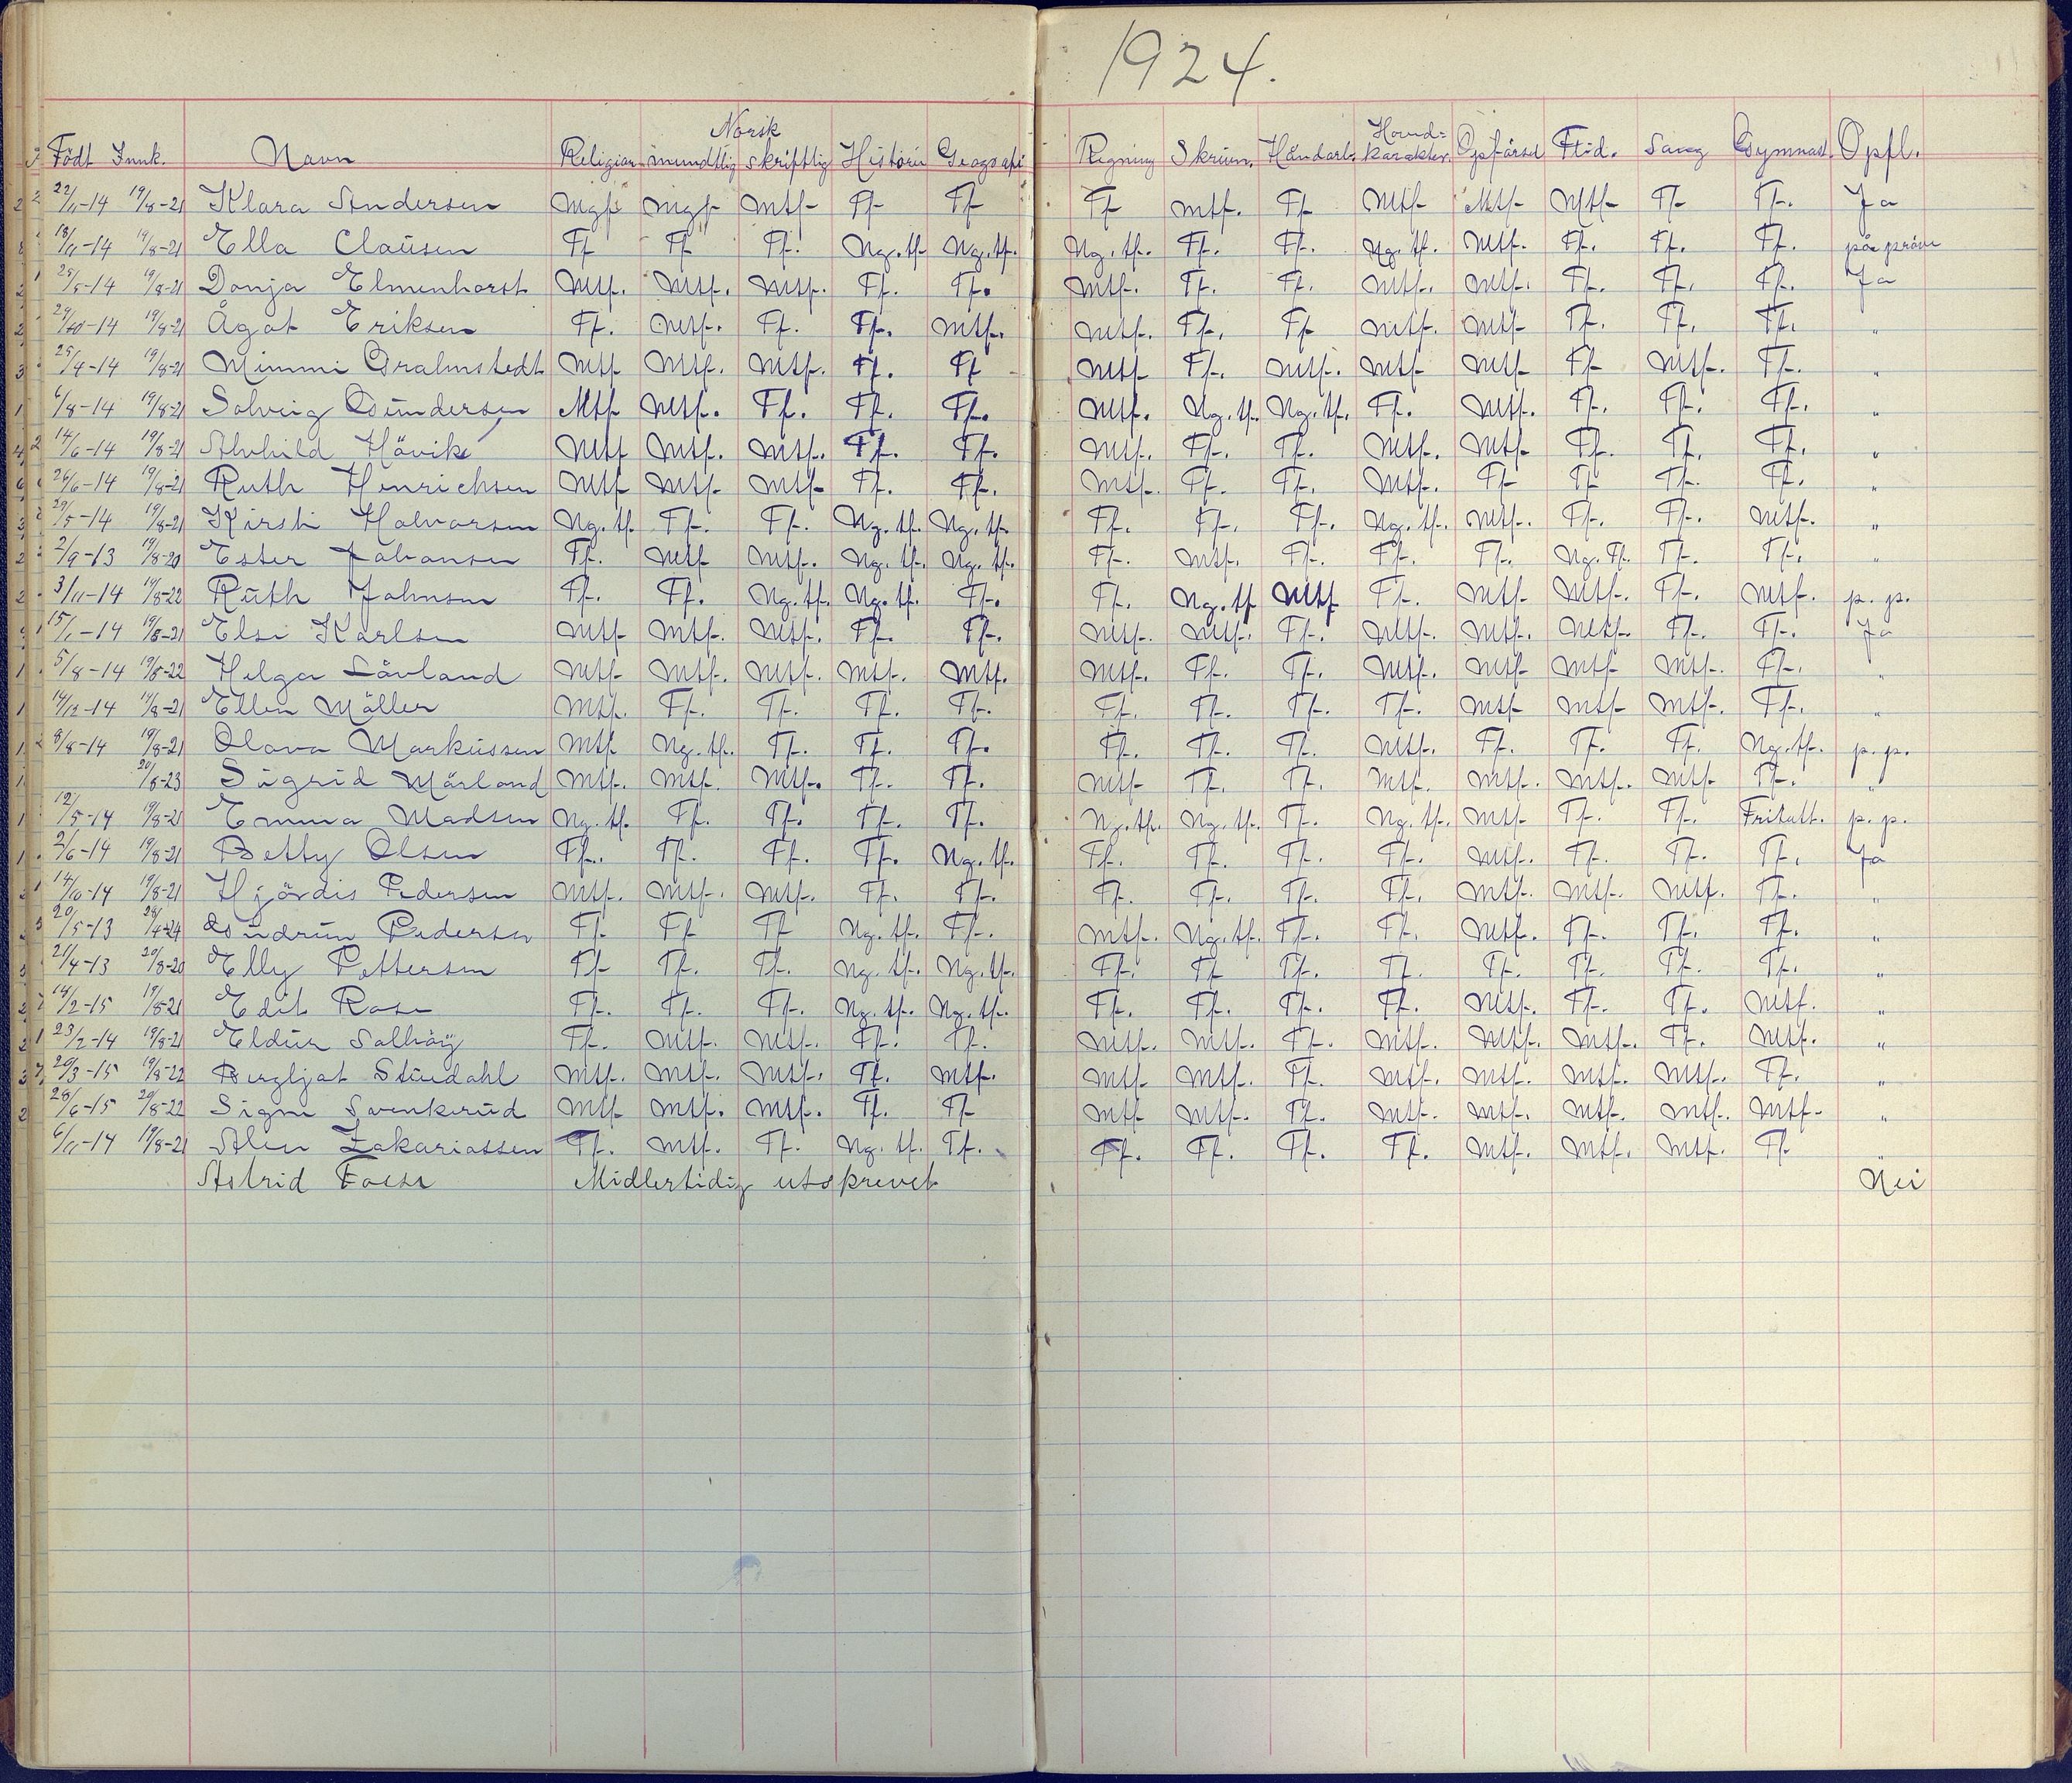 1924.
Norsk
Födt Innk. Navn Religion mundtlig skriftlig Historie Geografi Regning Skrivn. Håndarb. Hoved-karakter. Opførsel Flid. Sang Gymnast. Opfl.
22/11-14 19/8-21 Klara Andersen Mgf Mgf Mtf Tf Tf Tf Mtf. Tf Mtf Mtf Mtf Tf Tf. Ja
18/11-14 19/8-21 Ella Claüsen Tf Tf Tf. Ng.tf. Ng.tf. Ng.tf. Tf. Tf. Ng.tf. Mtf. Tf. Tf. Tf. på prøve
25/5-14 19/8-21 Donja Elmenhorst Mtf. Mtf. Mtf. Tf. Tf. Mtf. Tf. Tf. Mtf. Mtf. Tf. Tf. Tf. Ja
29/10-14 19/8-21 Ågot Eriksen Tf. Mtf. Tf. Tf. Mtf. Mtf. Tf. Tf Mtf. Mtf Tf. Tf. Tf. "
25/4-14 19/8-21 Mimmi Gralmstedt Mtf Mtf. Mtf. Tf. Tf Mtf Tf. Mtf. Mtf Mtf Tf Mtf. Tf. "
6/8-14 19/8-21 Solveig Gündersen Mtf Mtf. Tf. Tf. Tf. Mtf. Ng.tf. Ng.tf. Tf. Mtf. Tf. Tf. Tf. "
14/6-14 19/8-21 Alvhild Hövik Mtf Mtf. Mtf. Tf. Tf. Mtf. Tf. Tf. Mtf. Mtf. Tf. Tf. Tf. "
26/6-14 19/8-21 Ruth Henrichsen Mtf Mtf Mtf Tf. Tf. Mtf. Tf. Tf. Mtf. Tf Tf Tf. Tf. "
29/5-14 19/8-21 Kirsti Halvorsen Ng.tf. Tf. Tf. Ng.tf. Ng.tf. Tf. Tf. Tf. Ng.tf. Mtf. Tf. Tf. Mtf. "
2/9-13 19/8-20 Ester Johansen Tf. Mtf Mtf. Ng.tf. Ng.tf. Tf. Mtf. Tf. Tf. Tf. Ng.Tf. Tf Tf. "
3/11-14 19/8-22 Rüth Johnsen Tf. Tf. Ng.tf. Ng.tf. Tf. Tf. Ng.tf Mtf Tf. Mtf Mtf. Tf. Mtf. p.p.
15/1-14 19/8-21 Else Karlsen Mtf Mtf. Mtf. Tf. Tf. Mtf. Mtf. Tf. Mtf. Mtf. Mtf. Tf. Tf. Ja
5/8-14 19/8-22 Helga Lövland Mtf Mtf. Mtf. Mtf. Mtf. Mtf. Tf. Tf. Mtf. Mtf Mtf Mtf. Tf. "
14/12-14 19/8-21 Ellen Möller Mtf. Tf. Tf. Tf. Tf. Tf. Tf. Tf. Tf. Mtf Mtf Mtf. Tf. "
8/8-14 19/8-21 Olava Marküssen Mtf Ng.tf. Tf. Tf. Tf. Tf. Tf. Tf. Mtf. Tf. Tf. Tf. Ng.tf. p.p.
20/8-23 Sigrid Mørland Mtf. Mtf. Mtf. Tf. Tf. Mtf Tf. Tf. Mtf. Mtf. Mtf. Mtf Tf. "
12/5-14 19/8-21 Emma Madsen Ng.tf. Tf. Tf. Tf. Tf. Ng.tf. Ng.tf. Tf. Ng.tf. Mtf Tf. Tf. Fritatt. p.p.
2/6-14 19/8-21 Betty Olsen Tf. Tf. Tf. Tf. Ng.tf. Tf. Tf. Tf. Tf. Mtf. Tf. Tf. Tf. Ja
14/10-14 19/8-21 Hjördis Pedersen Mtf. Mtf. Mtf. Tf. Tf. Tf. Tf. Tf. Tf. Mtf. Mtf. Mtf. Tf. "
20/5-13 Güdrün Pedersen Tf. Tf Tf Ng.tf. Tf. Mtf. Ng.tf. Tf. Tf. Mtf. Tf. Tf. Tf. "
21/4-13 20/8-20 Elly Pettersen Tf Tf. Tf. Ng.tf. Ng.tf. Tf. Tf Tf. Tf. Tf. Tf. Tf. Tf. "
14/2-15 19/8-21 Edit Rose Tf. Tf. Tf. Ng.tf. Ng.tf. Tf. Tf. Tf. Tf. Mtf. Tf. Tf. Mtf. "
23/2-14 19/8-21 Eldür Solhöy Tf. Mtf. Mtf. Tf. Tf. Mtf. Mtf. Tf. Mtf. Mtf. Mtf. Tf. Mtf. "
20/3-15 19/8-22 Bergljot Stüedahl Mtf. Mtf. Mtf. Tf. Mtf. Mtf Mtf. Tf. Mtf. Mtf. Mtf. Mtf. Tf. "
28/6-15 29/8-22 Signe Svenkerüd Mtf Mtf. Mtf. Tf. Tf Mtf Mtf. Tf. Mtf. Mtf. Mtf. Mtf. Mtf "
6/11-14 19/8-21 Zakariassen Tf. Mtf. Tf. Ng.tf. Tf. Tf. Tf. Tf. Tf. Mtf. Mtf. Mtf. Tf. "
Astrid Midlertidig utskrevet Nei